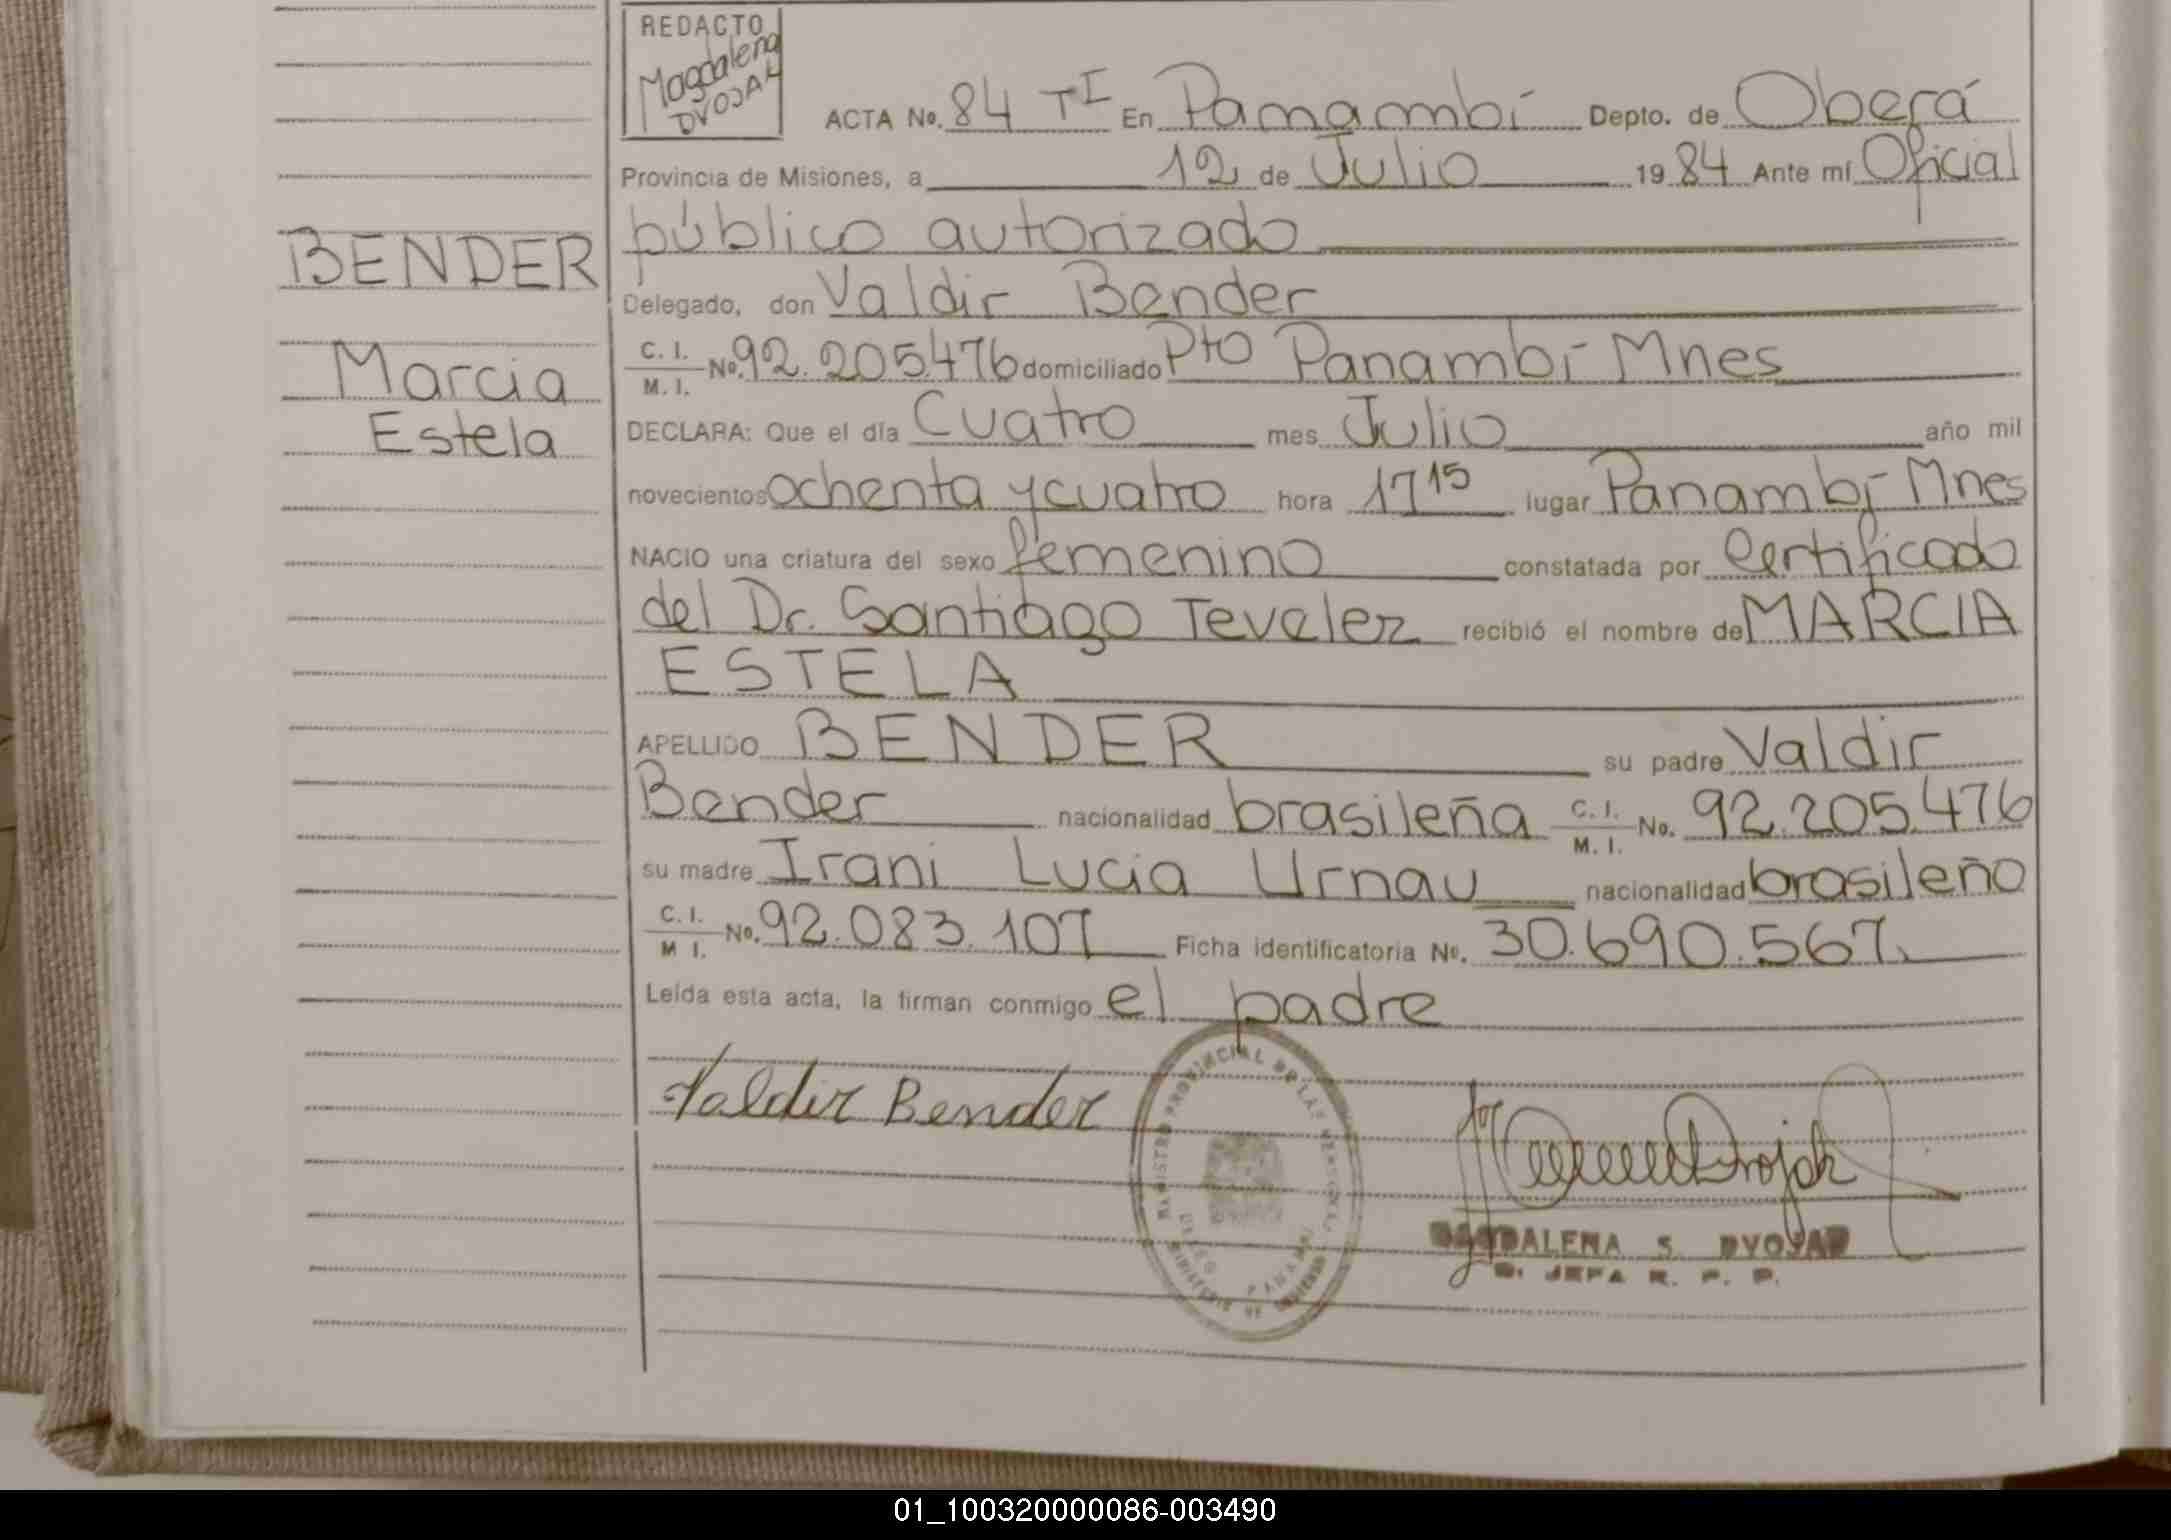 REDACTO
Magdalena
DVOJAK
ACTA No. 84 TI En Panambí Depto. de Oberá
Provincia de Misiones, a 12 de Julio 1984 Ante mí Oficial
público autorizado
Delegado, don Valdir Bender
C. I. / M. I. No. 92.205.476 domiciliado Pto Panambí Mnes
DECLARA: Que el día Cuatro mes Julio año mil
novecientos ochenta y cuatro hora 17 15 lugar Panambí Mnes
NACIO una criatura del sexo femenino constatada por Certificado
del Dr. Santiago Tevelez recibió el nombre de MARCIA
ESTELA
APELLIDO BENDER su padre Valdir
Bender nacionalidad brasileña C. I. / M. I. No. 92.205.476
su madre Irani Lucia Urnau nacionalidad brasileño
C. I. / M I. No. 92.083.107 Ficha identificatoria No. 30.690.567.
Leída esta acta, la firman conmigo el padre
BENDER
Marcia
Estela
Valdir Bender
REGISTRO PROVINCIAL DE LAS PERSONAS
PANAMBI
MINISTERIO DE GOBIERNO
MAGDALENA S. DVOJAK
JEFA R. P. P.
01_100320000086-003490